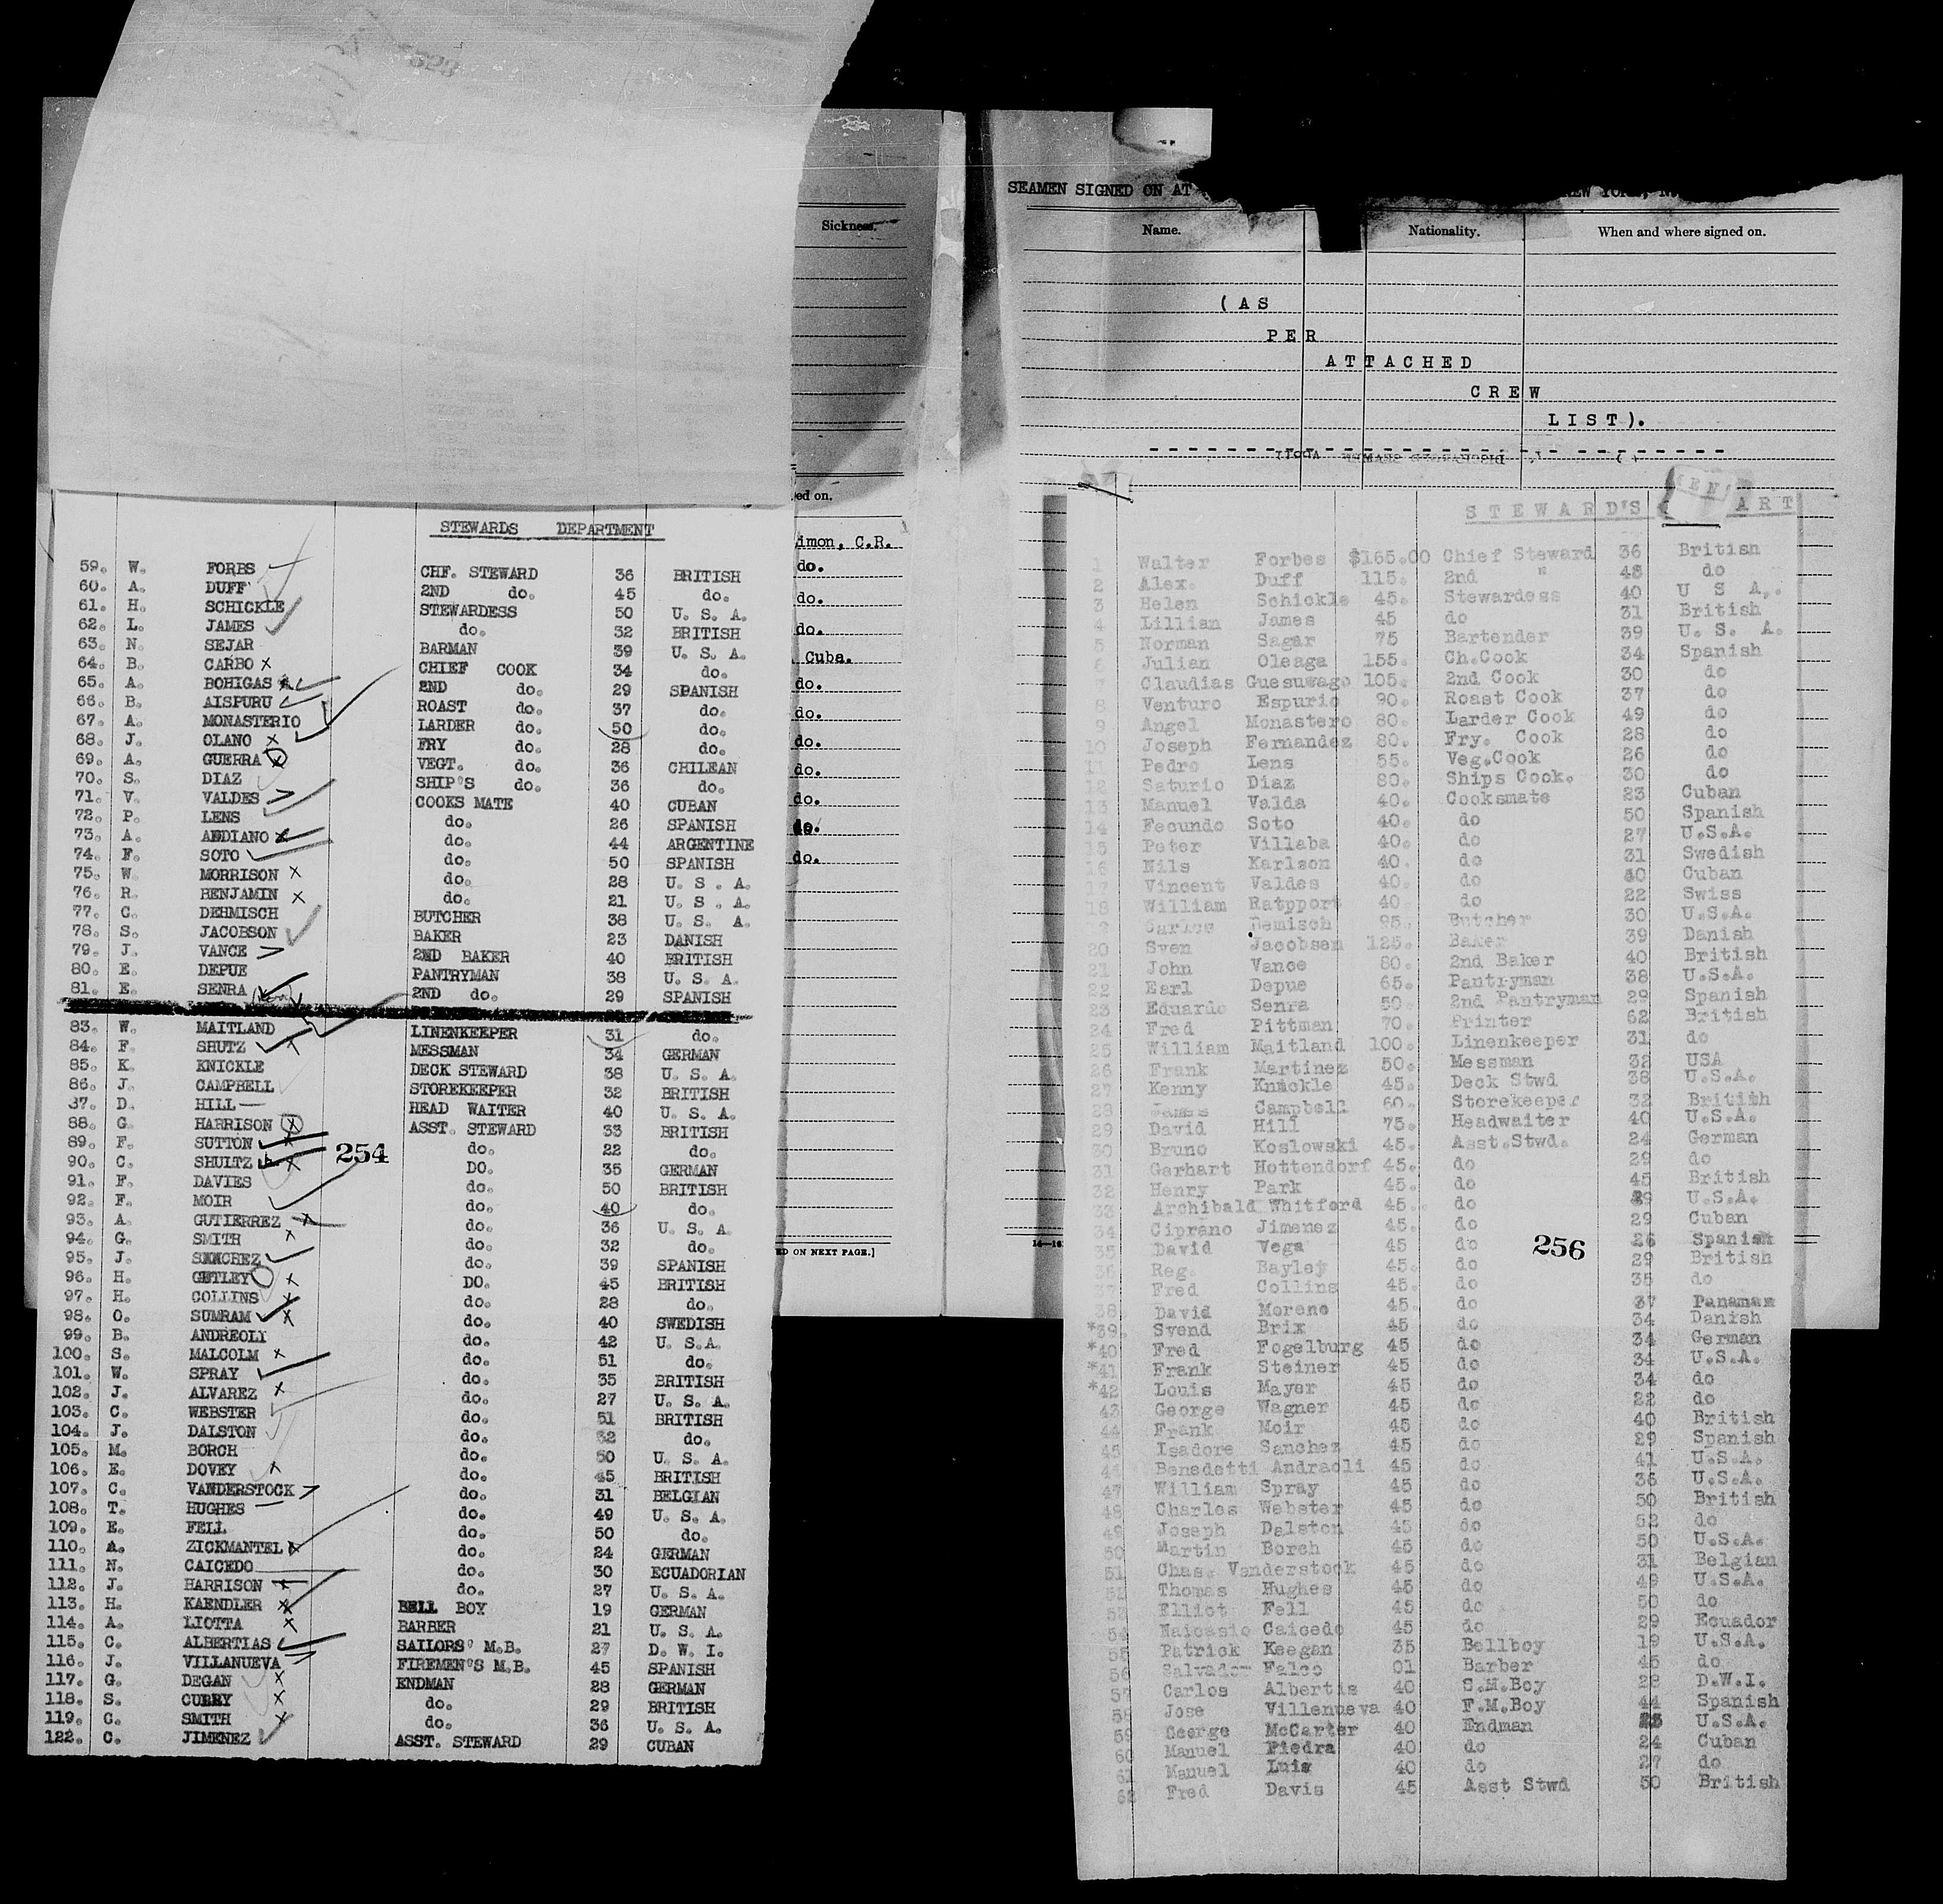 223
STEWARDS DEPARTMENT
59. W. FORBS CHF. STEWARD 36 BRITISH
60. A. DUFF 2ND do. 45 do.
61. H. SCHICKLE STEWARDESS 50 U. S. A.
62. L. JAMES do. 32 BRITISH
63. N. SEJAR BARMAN 39 U. S. A.
64. B. CARBO x CHIEF COOK 34 do.
65. A. BOHIGAS 2ND do. 29 SPANISH
66. B. AISPURU ROAST do. 37 do.
67. A. MONASTERIO LARDER do. 50 do.
68. J. OLANO x FRY do. 28 do.
69. A. GUERRA x VEGT. do. 36 CHILEAN
70. S. DIAZ SHIP'S do. 36 do.
71. V. VALDES COOKS MATE 40 CUBAN
72. P. LENS do. 26 SPANISH
73. A. ANDIANO do. 44 ARGENTINE
74. F. SOTO do. 50 SPANISH
75. W. MORRISON x do. 28 U. S. A.
76. R. BENJAMIN x do. 21 U. S. A.
77. C. DEHMISCH BUTCHER 38 U. S. A.
78. S. JACOBSON BAKER 23 DANISH
79. J. VANCE 2ND BAKER 40 BRITISH
80. E. DEPUE PANTRYMAN 38 U. S. A.
81. E. SENRA 2ND do. 29 SPANISH
83. W. MAITLAND LINENKEEPER 31 do.
84. F. SHUTZ x MESSMAN 34 GERMAN
85. K. KNICKLE DECK STEWARD 38 U. S. A.
86. J. CAMPBELL STOREKEEPER 32 BRITISH
87. D. HILL HEAD WAITER 40 U. S. A.
88. G. HARRISON x ASST. STEWARD 33 BRITISH
89. F. SUTTON x do. 22 do.
90. C. SHULTZ x DO. 35 GERMAN
254
91. F. DAVIES do. 50 BRITISH
92. F. MOIR do. 40 do.
93. A. GUTIERREZ x do. 36 U. S. A.
94. G. SMITH x do. 32 do.
95. J. SANCHEZ do. 39 SPANISH
96. H. GETLEY x DO. 45 BRITISH
97. H. COLLINS x do. 28 do.
98. O. SUMRAM x do. 40 SWEDISH
99. B. ANDREOLI do. 42 U. S.A.
100. S. MALCOLM x do. 51 do.
101. W. SPRAY do. 35 BRITISH
102. J. ALVAREZ x do. 27 U. S. A.
103. C. WEBSTER do. 51 BRITISH
104. J. DALSTON do. 52 do.
105. M. BORCH do. 50 U. S. A.
106. E. DOVEY x do. 45 BRITISH
107. C. VANDERSTOCK do. 31 BELGIAN
108. T. HUGHES do. 49 U. S. A.
109. E. FELL do. 50 do.
110. A. ZICKMANTEL do. 24 GERMAN
111. N. CAICEDO do. 30 ECUADORIAN
112. J. HARRISON x do. 27 U. S. A.
113. H. KAENDLER x BELL BOY 19 GERMAN
114. A. LIOTTA x BARBER 21 U. S. A.
115. C. ALBERTIAS SAILORS' M.B. 27 D. W. I.
116. J. VILLANUEVA FIREMEN'S M.B. 45 SPANISH
117. G. DEGAN x ENDMAN 28 GERMAN
118. S. CURRY x do. 29 BRITISH
119. C. SMITH x do. 36 U. S. A.
122. C. JIMENEZ ASST. STEWARD 29 CUBAN
Sickness.
ed on.
imon, C.R.
do.
do.
do.
. Cuba.
do.
do.
do.
do.
do.
do.
do.
ED ON NEXT PAGE.]
SEAMEN SIGNED ON AT
EW YORK, N.
Name. Nationality. When and where signed on.
(AS
PER
ATTACHED
CREW
LIST).
STEWARD'S ART
MEN
1 Walter Forbes $165.00 Chief Steward 36 British
2 Alex. Duff 115. 2nd " 48 do
3 Helen Schickle 45. Stewardess 40 U S A.
4 Lillian James 45 do 31 British
5 Norman Sagar 75 Bartender 39 U. S. A.
6 Julian Oleaga 155. Ch.Cook 34 Spanish
7 Claudias Guesuwago 105. 2nd Cook 30 do
8 Venturo Espurio 90. Roast Cook 37 do
9 Angel Monastero 80. Larder Cook 49 do
10 Joseph Fernandez 80. Fry. Cook 28 do
11 Pedro Lens 55. Veg.Cook 26 do
12 Saturio Diaz 80. Ships Cook. 30 do
13 Manuel Valda 40. Cooksmate 23 Cuban
14 Fecundo Soto 40. do 50 Spanish
15 Peter Villaba 40. do 27 U.S.A.
16 Nils Karlson 40. do 31 Swedish
17 Vincent Valdes 40. do 40 Cuban
18 William Ratpport 40. do 22 Swiss
Demisch 95. Butcher 30 U.S.A.
20 Sven Jacobsen 125. Baker 39 Danish
21 John Vance 80. 2nd Baker 40 British
22 Earl Depue 65. Pantryman 38 U.S.A.
23 Eduardo Senra 50. 2nd Pantryman 29 Spanish
24 Fred Pittman 70. Printer 62 British
25 William Maitland 100. Linenkeeper 31 do
26 Frank Martinez 50. Messman 32 USA
27 Kenny Knackle 45. Deck Stwd 38 U.S.A.
28 James Campbell 60. Storekeeper 32 British
29 David Hill 75. Headwaiter 40 U.S.A.
30 Bruno Koslowski 45. Asst.Stwd. 24 German
31 Gerhart Hottendorf 45. do 29 do
32 Henry Park 45. do 45 British
33 Archibald Whitford 45. do 39 U.S.A.
34 Ciprano Jimenez 45. do 29 Cuban
35 David Vega 45 do 26 Spanish
256
36 Reg. Bayley 45. do 29 British
37 Fred Collins 45. do 35 do
38. David Moreno 45. do 37 Panaman
*39. Svend Brix 45 do 34 Danish
*40 Fred Fogelburg 45 do 34 German
*41 Frank Steiner 45 do 34 U.S.A.
*42 Louis Mayer 45 do 34 do
43 George Wagner 45 do 22 do
44 Frank Moir 45 do 40 British
45 Isadore Sanchez 45 do 29 Spanish
46 Benedetti Andraoli 45 do 41 U.S.A.
47 William Spray 45 do 36 U.S.A.
48 Charles Webster 45 do 50 British
49 Joseph Dalston 45 do 52 do
50 Martin Borch 45 do 50 U.S.A.
51 Chas. Vanderstock 45 do 31 Belgian
52 Thomas Hughes 45 do 49 U.S.A.
53 Elliot Fell 45 do 50 do
54 Naicasio Caicedo 45 do 29 Ecuador
55 Patrick Keegan 35 Bellboy 19 U.S.A.
56 Salvador Falco 01 Barber 45 do
57 Carlos Albertis 40 S.M.Boy 28 D.W.I.
58 Jose Villenueva 40 F.M.Boy 44 Spanish
59 George McCarter 40 Endman 25 U.S.A.
60 Manuel Piedra 40 do 24 Cuban
61 Manuel Luis 40 do 27 do
62 Fred Davis 45 Asst Stwd 50 British